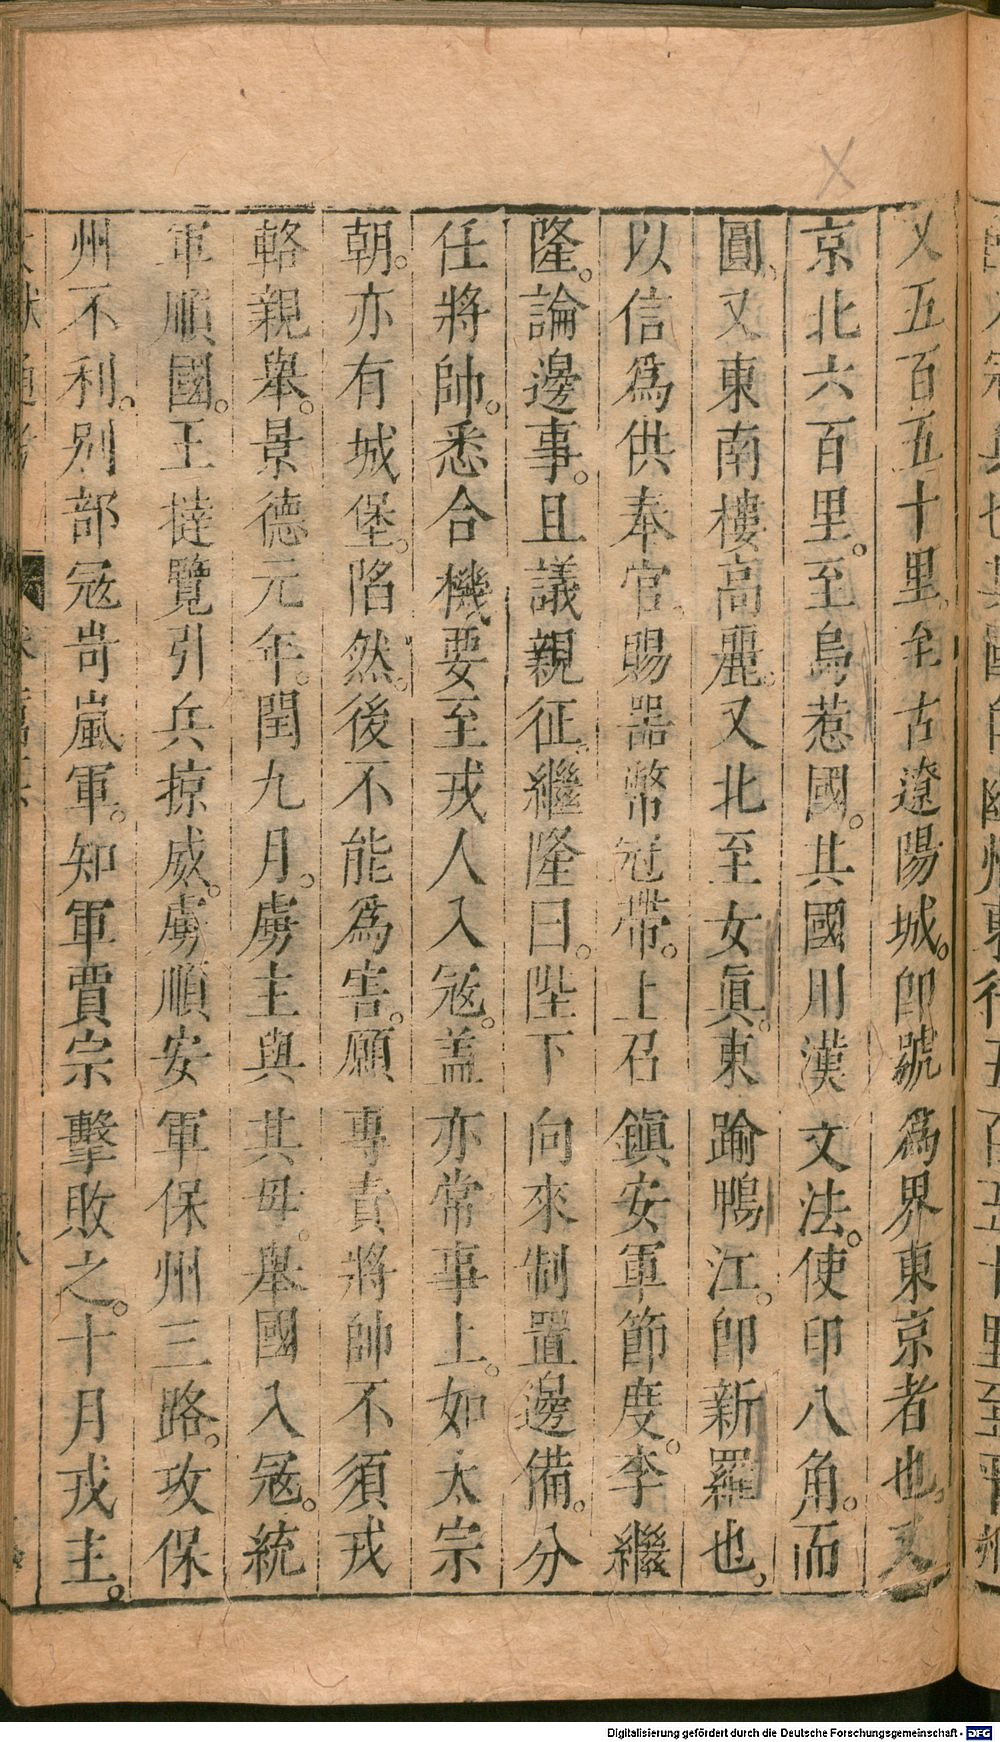 又五百五十里。至古遼陽城。卽號爲界東京者也。又
京北六百里。至烏惹國。其國用漢文法。使印八角。而
圓。又東南樓高麗。又北至女眞。東踰鴨江。卽新羅也。
以信爲供奉官。賜器幣冠帶。上召鎭安軍節度。李繼
隆。論邊事。且議親征。繼隆曰。陛下向來制置邊備。分
任將帥。悉合機要至戎人入冦。盖亦常事上。如太宗
朝。亦有城堡。陷然。後不能爲害。願專責將帥不須戎
輅親舉。景德元年。閏九月。虜主與其毋。舉國入冦。統
軍順國。王撻覽引兵掠威。虜順安軍保州三路。攻保
州不利。别部冦岢嵐軍。知軍賈宗擊敗之。十月戎主。
Digitalisierung gefördert durch die Deutsche Forschungsgemeinschaft - DFG